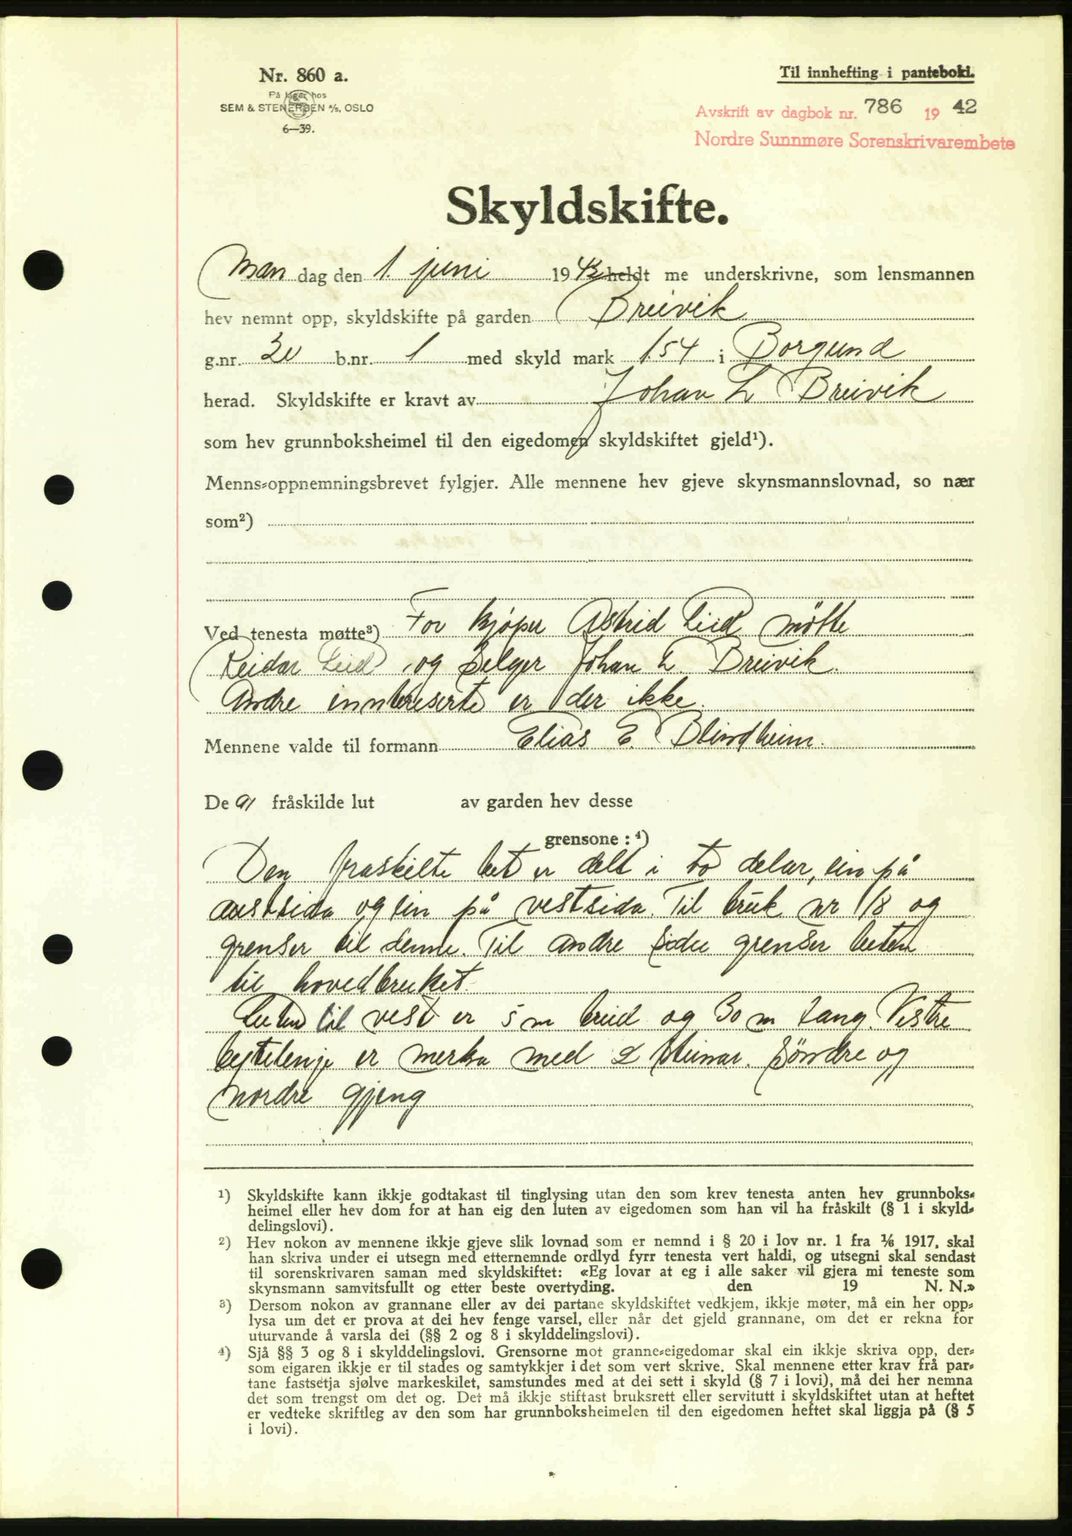 Nr. 860 a.
På lager hos
SEM & STENERSEN A/S, OSLO
6—39.
Til innhefting i pantebok.
Avskrift av dagbok nr. 786 19 42
Nordre Sunnmøre Sorenskrivarembete
Skyldskifte.
Man dag den 1. juni 1942 heldt me underskrivne, som lensmannen
hev nemnt opp, skyldskifte på garden Breivik
g.nr. 30 b.nr. 1 med skyld mark 1.54 i Borgund
herad. Skyldskifte er kravt av Johan L Breivik
som hev grunnboksheimel til den eigedomen skyldskiftet gjeld¹).
Menns-oppnemningsbrevet fylgjer. Alle mennene hev gjeve skynsmannslovnad, so nær
som²)
Ved tenesta møtte³) For kjøper Astrid Eiid møtte
Reidar Eiid, og selger Johan L Breivik.
Andre inntereserte er der ikke.
Mennene valde til formann Elias E. Blindheim.
De 91 fråskilde lut av garden hev desse
grensone :⁴)
Den fraskilte lut er delt i to delar, ein på
austsida og ein på vestsida. Til bruk nr 1/8 og
grenser til denne. Til andre sider grenser luten
til hovedbruket.
Luten til vest er 5 m breid og 30 m lang. Vestre
bytelinje er merka med 2 steinar. Søndre og
nordre gjeng
¹) Skyldskifte kann ikkje godtakast til tinglysing utan den som krev tenesta anten hev grunnboks-
heimel eller hev dom for at han eig den luten av eigedomen som han vil ha fråskilt (§ 1 i skyld-
delingslovi).
²) Hev nokon av mennene ikkje gjeve slik lovnad som er nemnd i § 20 i lov nr. 1 fra 1/6 1917, skal
han skriva under ei utsegn med etternemnde ordlyd fyrr tenesta vert haldi, og utsegni skal sendast
til sorenskrivaren saman med skyldskiftet: «Eg lovar at eg i alle saker vil gjera mi teneste som
skynsmann samvitsfullt og etter beste overtyding. den 19 N. N.»
³) Dersom nokon av grannane eller av dei partane skyldskiftet vedkjem, ikkje møter, må ein her opp-
lysa um det er prova at dei hev fenge varsel, eller når det gjeld grannane, om det er rekna for
uturvande å varsla dei (§§ 2 og 8 i skylddelingslovi).
⁴) Sjå §§ 3 og 8 i skylddelingslovi. Grensorne mot granne-eigedomar skal ein ikkje skriva opp, der-
som eigaren ikkje er til stades og samtykkjer i det som vert skrive. Skal mennene etter krav frå par-
tane fastsetja sjølve markeskilet, samstundes med at dei sett i skyld (§ 7 i lovi), må dei her nemna
det som trengst om det og. Det må ikkje stiftast bruksrett eller servitutt i skyldskiftet utan at heftet
er vedteke skriftleg av den som har grunnboksheimelen til den eigedomen heftet skal liggja på (§ 5
i lovi).